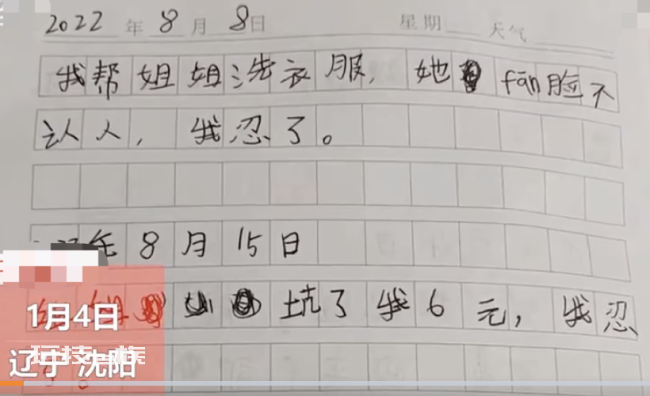 2022年8月8日 星期 天气
我帮姐姐洗衣服,她fān脸不
认人,我忍了。
年8月15日
坑了我6元,我忍
了。
1月4日
辽宁 沈阳